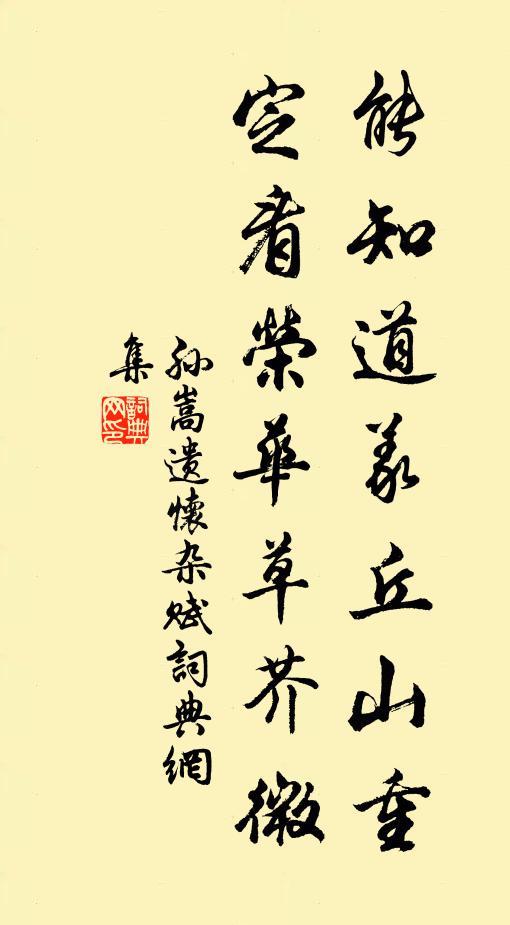 能知道義丘山重
定看榮華草芥微
孙嵩遗懷杂赋詞典網
集
詞典網印